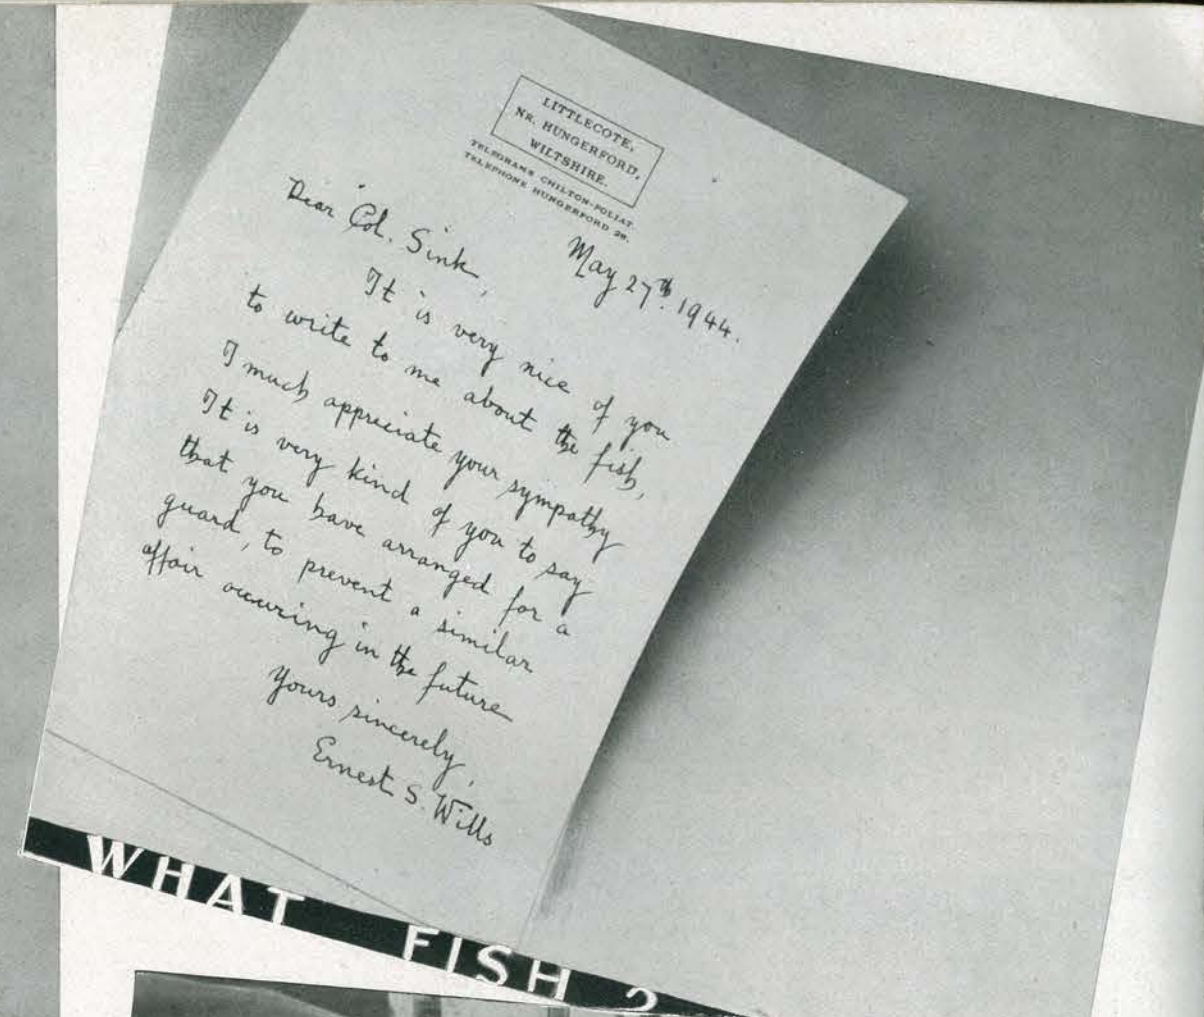 LITTLECOTE,
NR. HUNGERFORD,
WILTSHIRE.
TELEGRAMS CHILTON-FOLIAT.
TELEPHONE HUNGERFORD 28.
May 27th. 1944.
Dear Col. Sink,
It is very nice of you
to write to me about the fish,
I much appreciate your sympathy
It is very kind of you to say
that you have arranged for a
guard, to prevent a similar
affair occuring in the future
Yours sincerely,
Ernest S. Wills
WHAT FISH?